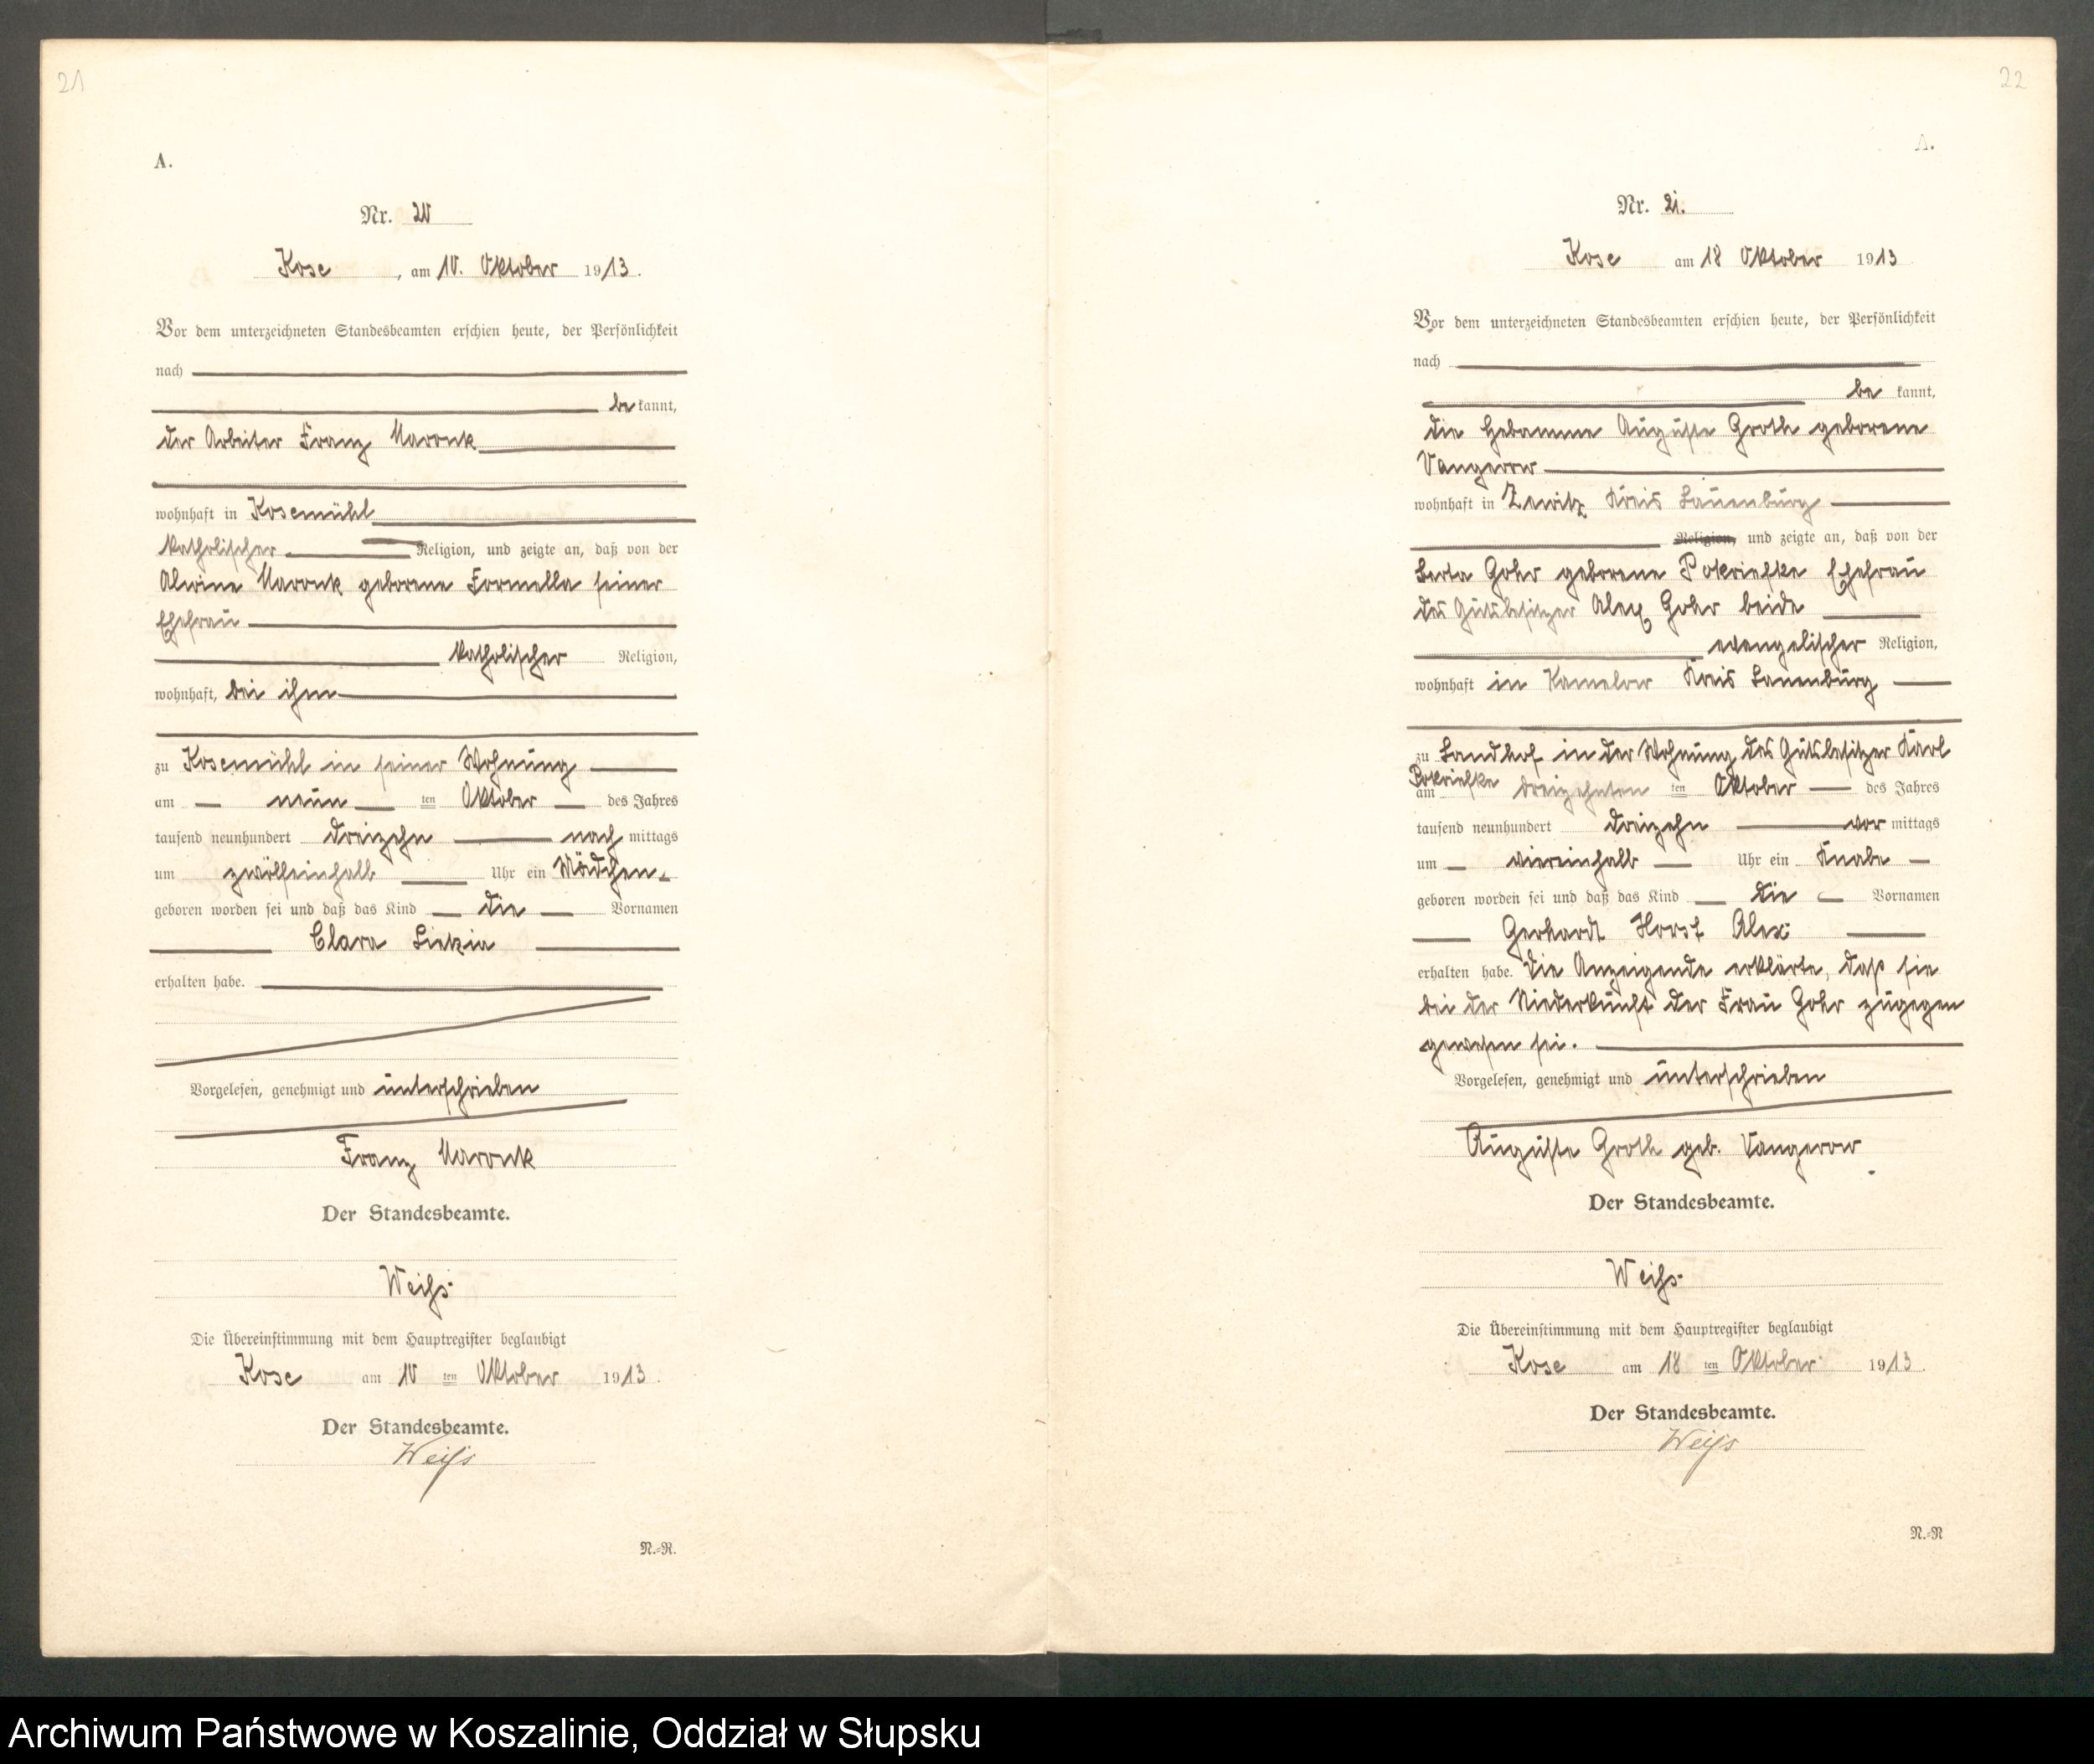 21
A.
Nr. 20
Kose, am 10. Oktober 1913.
Vor dem unterzeichneten Standesbeamten erschien heute, der Persönlichkeit
nach
bekannt,
der Arbeiter Franz Maronk
wohnhaft in Kosemühl
katholischer Religion, und zeigte an, daß von der
Alwine Maronk geborene Formella seiner
Ehefrau
katholischer Religion,
wohnhaft, bei ihm
zu Kosemühl in seiner Wohnung
am neun ten Oktober des Jahres
tausend neunhundert dreizehn nach mittags
um zwölfeinhalb Uhr ein Mädchen
geboren worden sei und daß das Kind die Vornamen
Clara
erhalten habe.
Vorgelesen, genehmigt und unterschrieben
Franz Maronk
Der Standesbeamte.
Weiß
Die Übereinstimmung mit dem Hauptregister beglaubigt
Kose am 10 ten Oktober 1913.
Der Standesbeamte.
Weiß
N.=R.
22
A.
Nr. 21.
Kose am 18 Oktober 1913
Vor dem unterzeichneten Standesbeamten erschien heute, der Persönlichkeit
nach
be kannt,
die Hebamme Auguste Groth geborene
Vangerow
wohnhaft in Zewitz Kreis Lauenburg
Religion, und zeigte an, daß von der
Berta Gohr geborene Pokriefke Ehefrau
des Gutsbesitzer Alex Gohr beide
evangelischer Religion,
wohnhaft in Kamelow Kreis Lauenburg
zu Landhof in der Wohnung des Gutsbesitzer Karl
Pokriefke
am dreizehnten ten Oktober des Jahres
tausend neunhundert dreizehn vor mittags
um viereinhalb Uhr ein Knabe
geboren worden sei und daß das Kind die Vornamen
Gerhardt Horst Alex
erhalten habe. Die Anzeigende erklärte, daß sie
bei der Niederkunft der Frau Gohr zugegen
gewesen sei.
Vorgelesen, genehmigt und unterschrieben
Auguste Groth geb. Vangerow
Der Standesbeamte.
Weiß
Die Übereinstimmung mit dem Hauptregister beglaubigt
Kose am 18 ten Oktober 1913.
Der Standesbeamte.
Weiß
N.=R
Archiwum Państwowe w Koszalinie, Oddział w Słupsku